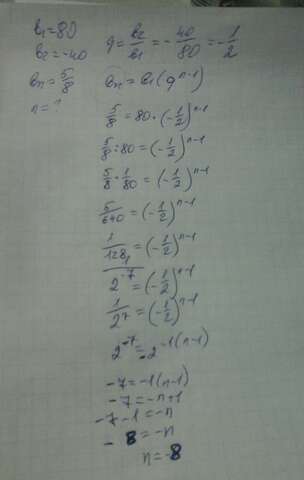 b₁=80
b₂=-40
q=b₂/b₁=-40/80=-1/2
bₙ=5/8
bₙ=b₁(q^(n-1))
n=?
5/8=80·(-1/2)^(n-1)
5/8:80=(-1/2)^(n-1)
5/8·1/80=(-1/2)^(n-1)
5/640=(-1/2)^(n-1)
1/128=(-1/2)^(n-1)
2^(-7)=(-1/2)^(n-1)
1/2^7=(-1/2)^(n-1)
2^(-7)=-2^(-1(n-1))
-7=-1(n-1)
-7=-n+1
-7-1=-n
-8=-n
n=-8